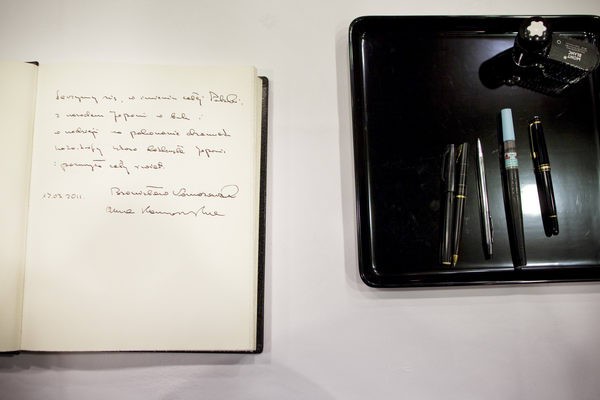 Łączymy się, w imieniu całej Polski,
z narodem Japonii w bólu i
w nadziei na pokonanie dramatu
katastrofy która dotknęła Japonię
i pomyśl cały świat.
17.03.2011. Bronisław Komorowski
Anna Komorowska
MONT
BLANC